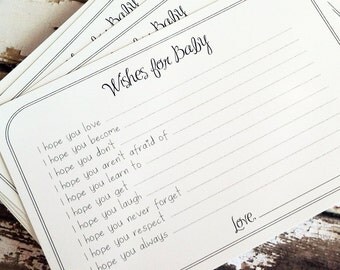 Baby
Baby
Wishes for Baby
I hope you love
I hope you become
I hope you don't
I hope you aren't afraid of
I hope you learn to
I hope you get
I hope you laugh
I hope you never forget
I hope you respect
I hope you always
Love,